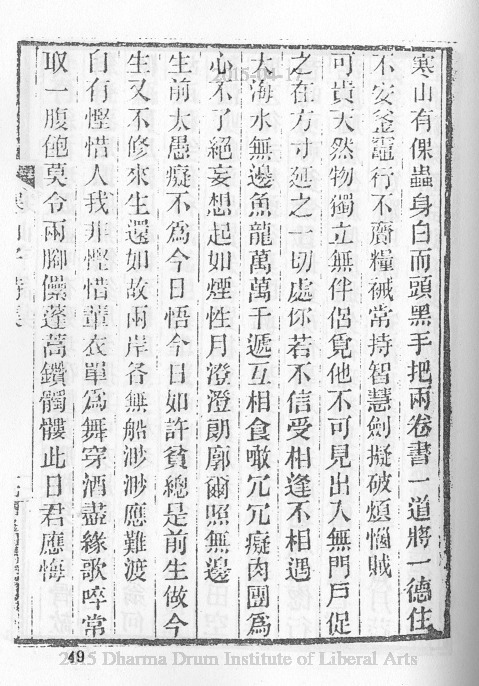 寒山有倮蟲身白而頭黑手把兩卷書一道將一德住
不安釜竈行不齎糧裓常持智慧劍擬破煩惱賊
可貴天然物獨立無伴侶覓他不可見出入無門戶促
之在方寸延之一切處你若不信受相逢不相遇
大海水無邊魚龍萬萬千遞互相食噉冗冗癡肉團為
心不了絕妄想起如煙性月澄澄朗廓爾照無邊
生前太愚癡不為今日悟今日如許貧總是前生做今
生又不修來生還如故兩岸各無船渺渺應難渡
自有慳惜人我非慳惜輩衣單為舞穿酒盡緣歌啐常
取一腹飽莫令兩腳儽蓬蒿鑽髑髏此日君應悔
49
2015 Dharma Drum Institute of Liberal Arts